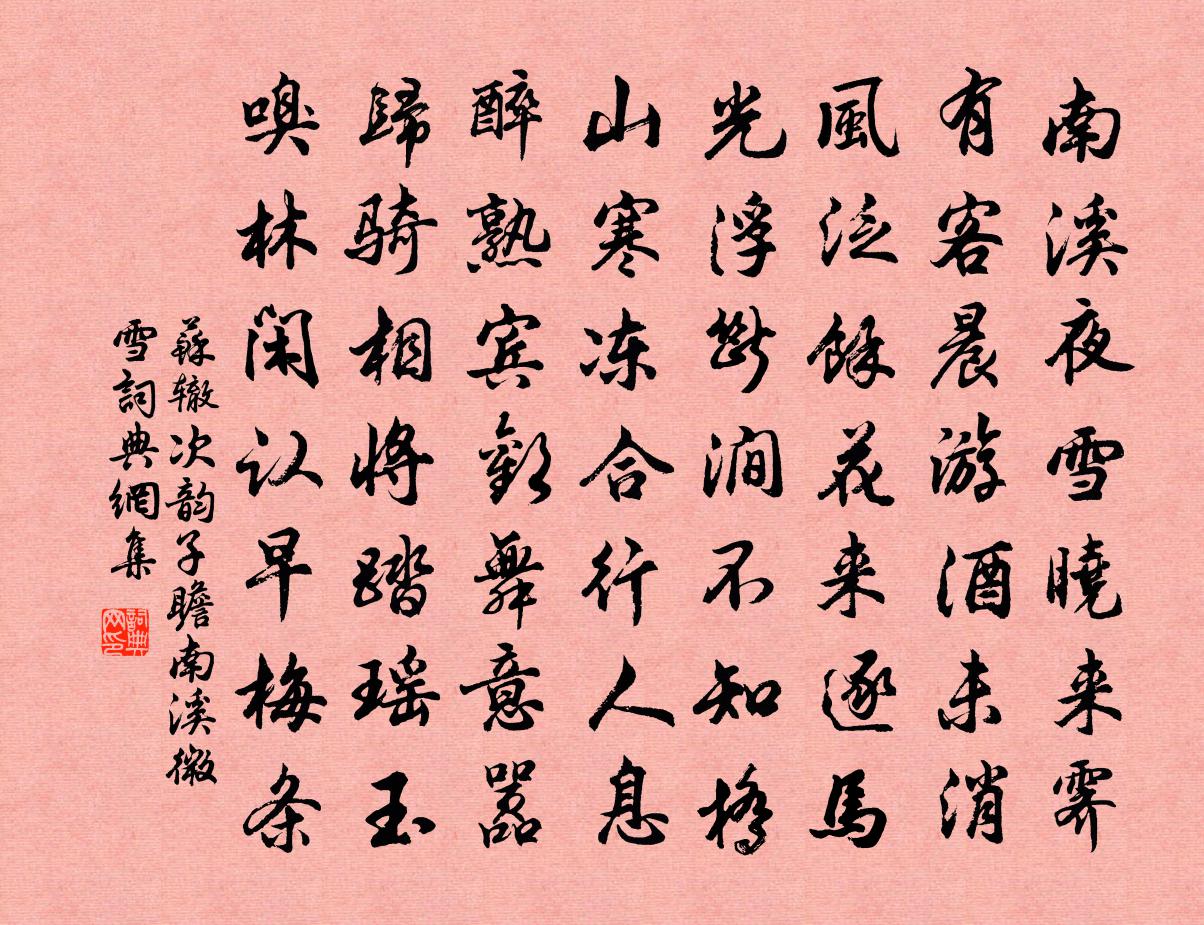 南溪夜雪曉来霁
有客晨游酒未消
風泛餘花来逐馬
光浮斷澗不知橋
山寒冻合行人息
醉熟宾歡舞意嚣
歸骑相将踏瑶玉
嗅林闲认早梅条
蘇辙次韵子瞻南溪微
雪詞典網集
詞典
网印